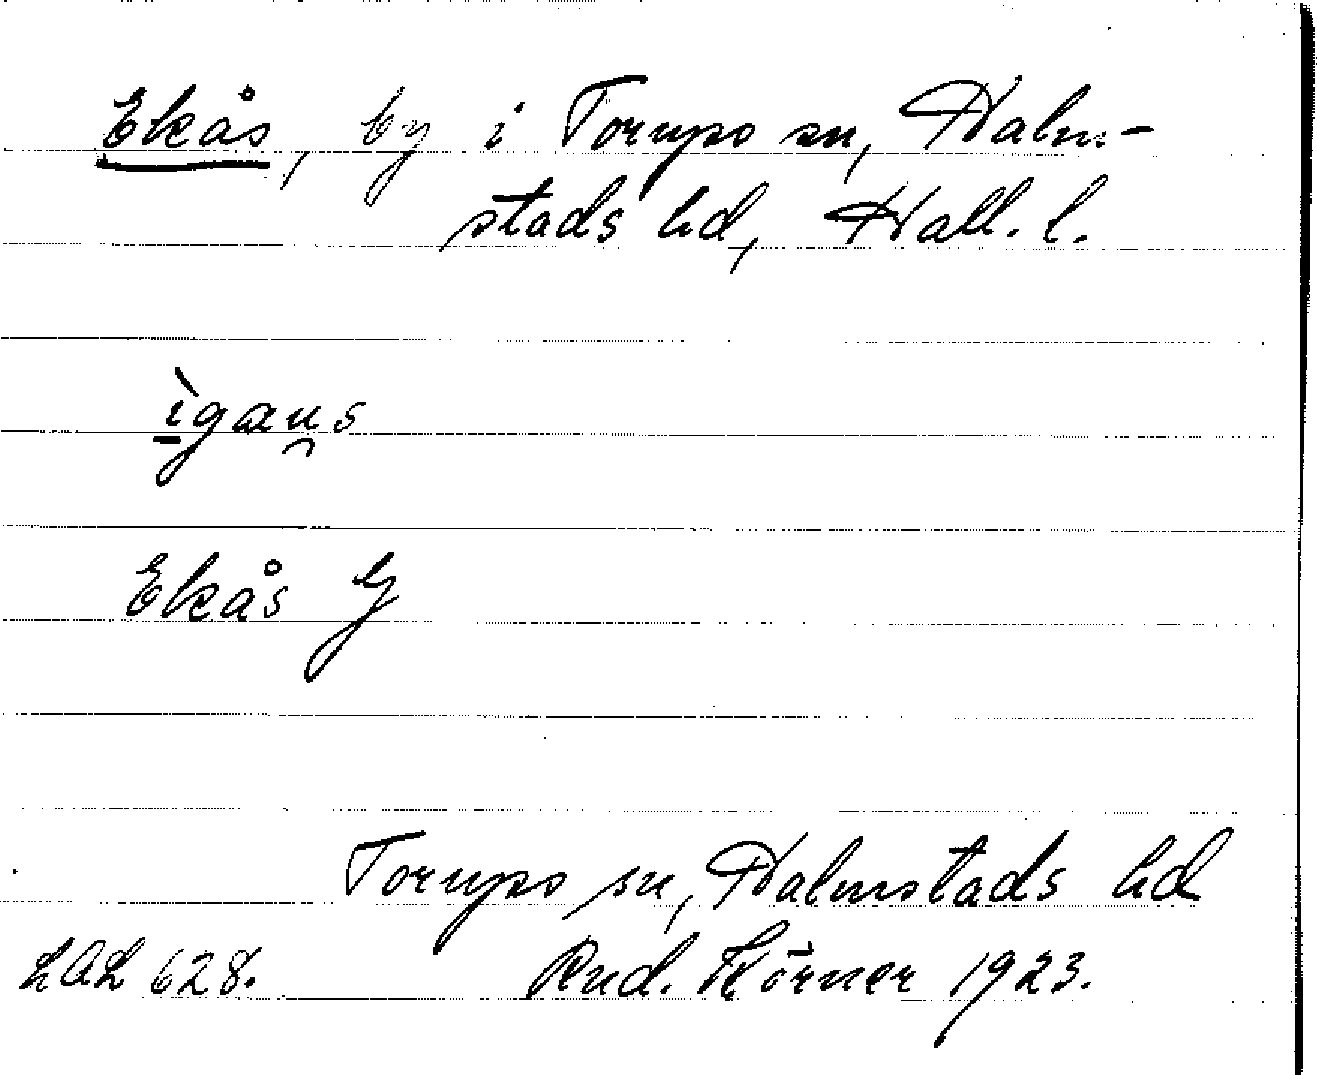 Ekås, by i Torups sn, Halm-
stads hd, Hall. l.
ì̱gau̯s
Ekås G
Torups sn, Halmstads hd
LAL 628. Rud. Körner 1923.